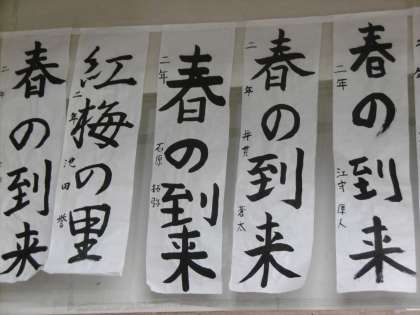 春の到来
二年
江守 厚人
春の到来
二年
井貫 蒼太
春の到来
二年
石原 拓弥
紅梅の里
二年
池田 誉
春の到来
二年